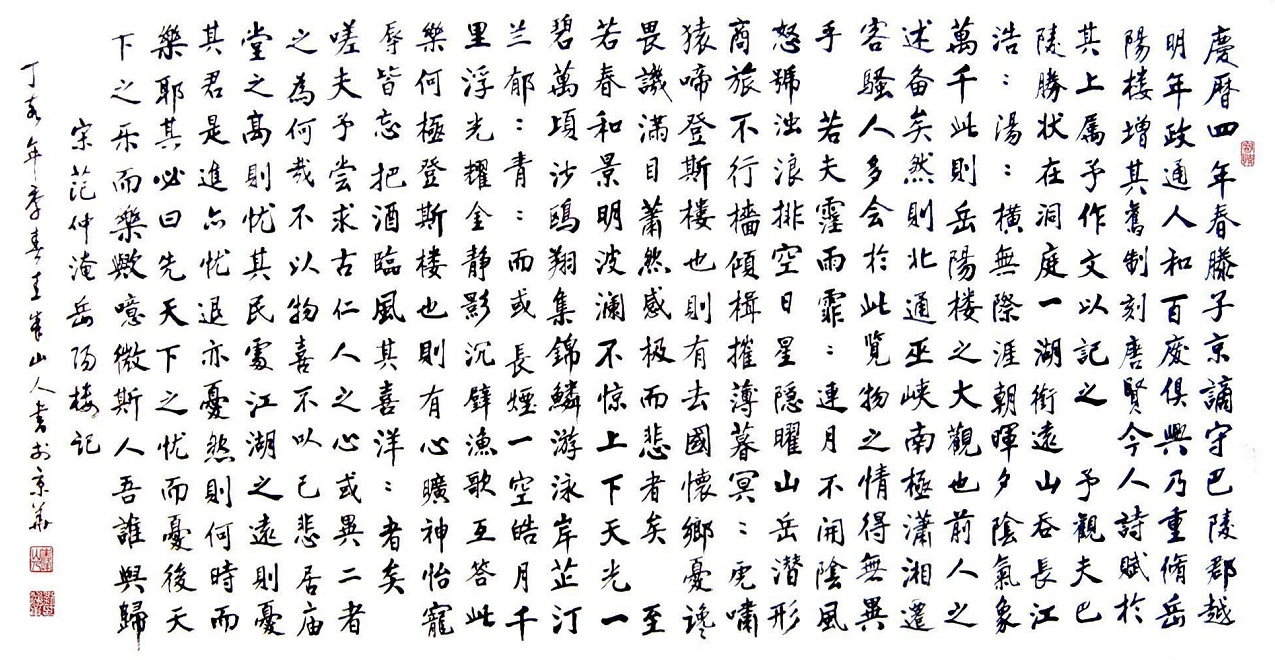 慶曆四年春滕子京謫守巴陵郡越
明年政通人和百廢俱興乃重脩岳
陽楼增其舊制刻唐賢今人詩賦於
其上属予作文以記之 予觀夫巴
陵勝状在洞庭一湖銜遠山吞長江
浩:湯:橫無際涯朝暉夕陰氣象
萬千此則岳陽楼之大觀也前人之
述备矣然則北通巫峡南極瀟湘遷
客騷人多会於此覽物之情得無異
乎 若夫霪雨霏:連月不開陰風
怒號浊浪排空日星隱曜山岳潜形
商旅不行檣傾楫摧薄暮冥:虎嘯
猿啼登斯楼也則有去國懷鄉憂讒
畏譏满目蕭然感极而悲者矣 至
若春和景明波澜不惊上下天光一
碧萬頃沙鷗翔集錦鱗游泳岸芷汀
兰郁:青:而或長煙一空皓月千
里浮光耀金静影沉璧漁歌互答此
樂何極登斯楼也則有心曠神怡寵
辱皆忘把酒臨風其喜洋:者矣
嗟夫予尝求古仁人之心或異二者
之為何哉不以物喜不以己悲居庙
堂之高則忧其民處江湖之遠則憂
其君是進亦忧退亦憂然則何時而
樂耶其必曰先天下之忧而憂後天
下之乐而樂歟噫微斯人吾誰與歸
宋范仲淹岳阳楼记
丁亥年季春山人书於京華